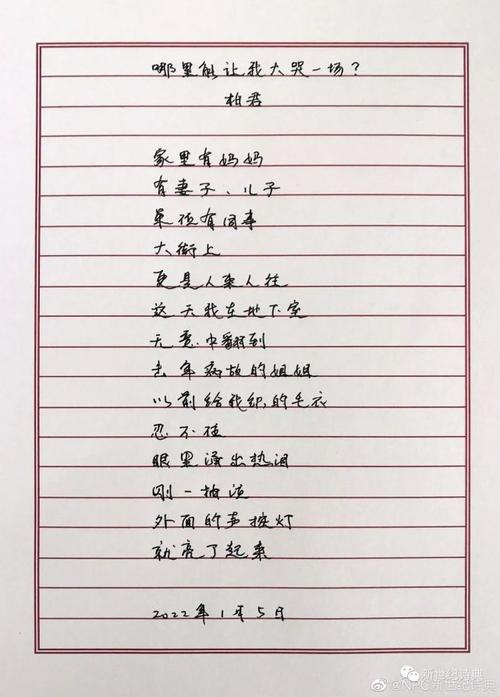 哪里能让我大哭一场？
柏君
家里有妈妈
有妻子、儿子
单位有同事
大街上
更是人来人往
这天我在地下室
无意中翻到
去年病故的姐姐
以前给我织的毛衣
忍不住
眼里涌出热泪
刚一抽泣
外面的声控灯
就亮了起来
2022年1月5日
新世纪诗典
@NPC新世纪诗典